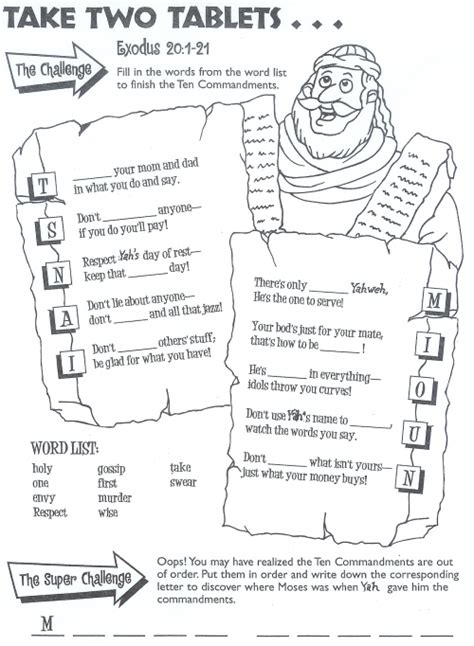 TAKE TWO TABLETS . . .
Exodus 20:1-21
The Challenge
Fill in the words from the word list
to finish the Ten Commandments.
T
______ your mom and dad
in what you do and say.
S
Don't ________ anyone—
if you do you'll pay!
N
Respect Yah's day of rest—
keep that ______ day!
A
Don't lie about anyone—
don't ______ and all that jazz!
I
Don't ______ others' stuff;
be glad for what you have!
There's only ______ Yahweh,
He's the one to serve!
M
Your bod's just for your mate,
that's how to be ______ !
I
He's ______ in everything—
idols throw you curves!
O
Don't use Yah's name to ______,
watch the words you say.
U
Don't ______ what isn't yours—
just what your money buys!
N
WORD LIST:
holy gossip take
one first swear
envy murder
Respect wise
The Super Challenge
Oops! You may have realized the Ten Commandments are out
of order. Put them in order and write down the corresponding
letter to discover where Moses was when Yah gave him the
commandments.
M